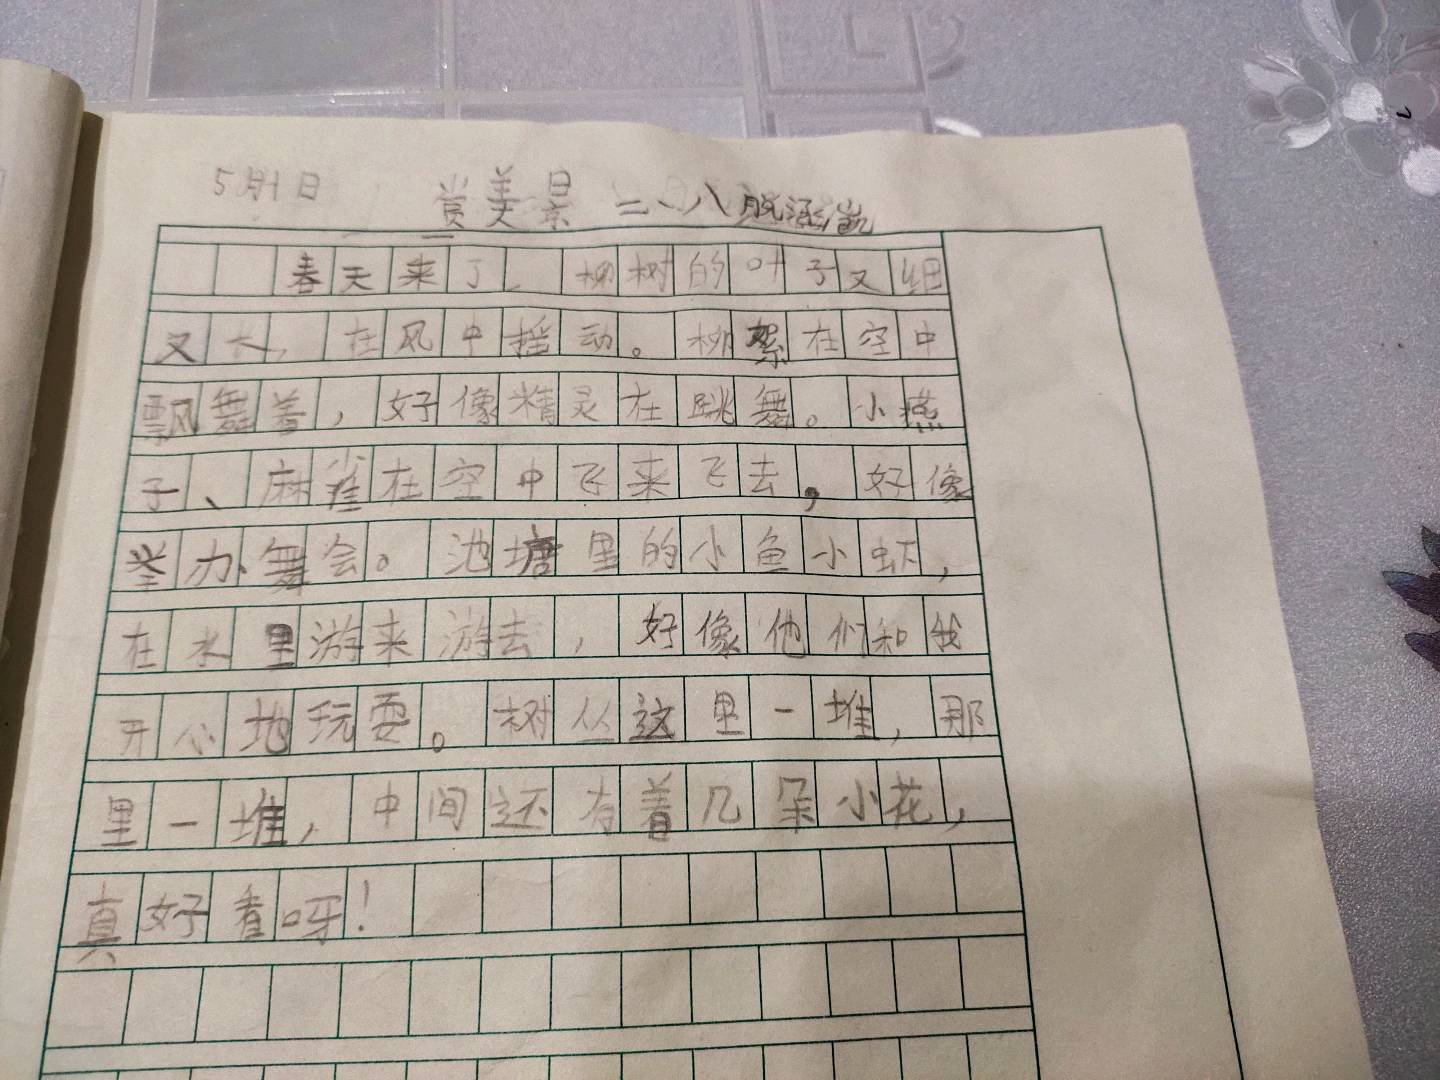 5月1日 赏美景 二、八
春天来了，柳树的叶子又细
又长，在风中摇动。柳絮在空中
飘舞着，好像精灵在跳舞。小燕
子、麻雀在空中飞来飞去，好像
举办舞会。池塘里的小鱼小虾，
在水里游来游去，好像他们和我
开心地玩耍。树丛这里一堆，那
里一堆，中间还有着几朵小花，
真好看呀！